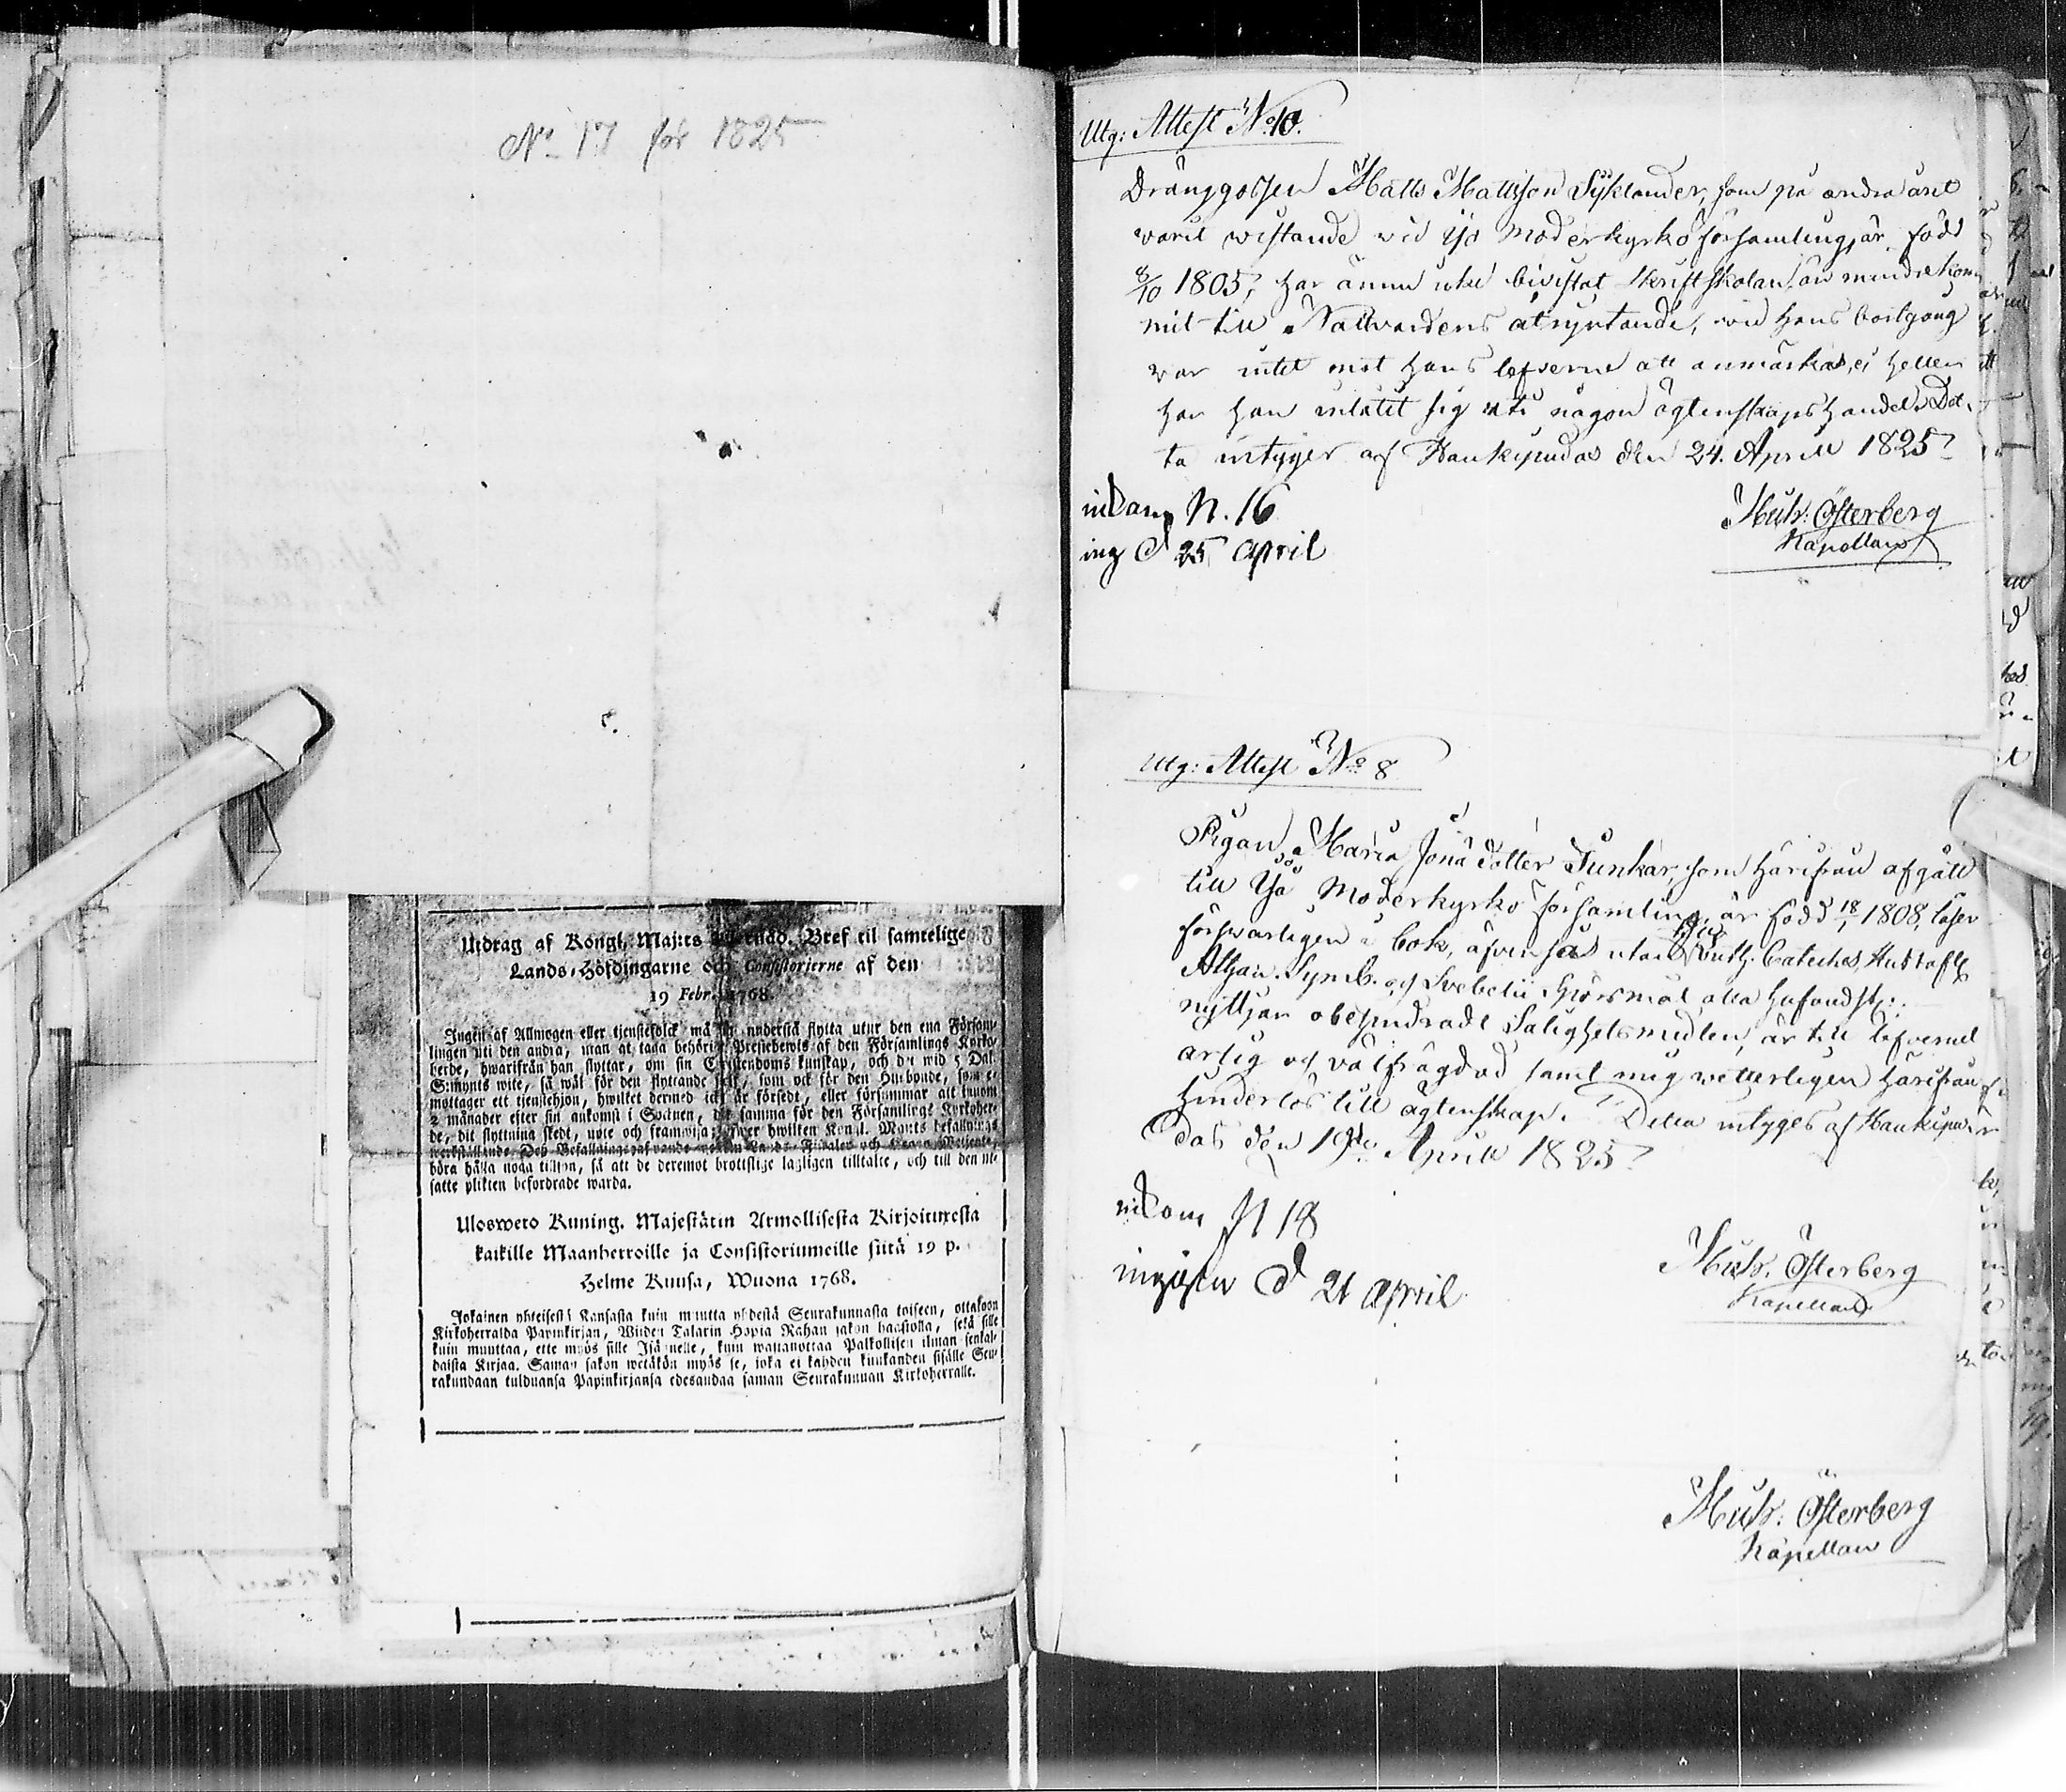 No 17 för 1825
Utdrag af Kongl. Maj:ts Bref til samtelige
Lands-Höfdingarne och Consistorierne af den
19 Febr. 1768.
Ingen af Allmogen eller tjenstefolck må understå flytta utur den ena Församlingen
uti den andra, utan at taga behörigt Prestebewis af den Församlings Kyrkoherde,
hwarifrån han flyttar, om sin Christendoms kunskap, och det wid 5 Dal.
S:mynts wite, så wäl för den flyttande sielf, som ock för den Husbonde, som
mottager ett tjenstehjon, hwilket dermed ick är försedt, eller försummar att innom
2 månader efter sin ankomst i Socknen, det samma för den Församlings Kyrkoherde,
dit flyttning skedt, upte och framwisa; öfwer hwilken Kongl. Maj:ts befallnings
werkställande
böra hålla noga tillsyn, så att de deremot brottslige lagligen tilltalte, och till den utsatte
plikten befordrade warda.
Uloswero Kuning. Majestätin Armollisesta Kirjoituxesta
kaikille Maanherroille ja Consistoriumeille siitä 19 p.
Helme Kuusa, Wuona 1768.
Jokainen yhteisestä Kansasta kuin muutta yhdestä Seurakunnasta toiseen, ottakoon
Kirkoherralda Papinkirjan, Wiiden Talarin Hopia Rahan sakon haastolla, sekä sille
kuin muuttaa, ette myös sille Isännelle, kuin wastanottaa Palkollisen ilman senkaldaista
Kirjaa. Saman sakon wetäkön myös se, joka ei kahden kuukauden sisälle Seurakundaan
tulduansa Papinkirjansa edesandaa saman Seurakunnan Kirkoherralle.
Utg: Attest No 10.
Dränggossen Matts Mattsson Syklander, som på andra året
varit vistande vid Ijo Moderkyrko församling, är född
8/10 1805, har ännu icke bivistat Skriftskolan, än mindre kom
mit till Nattvardens åtnjutande, vid hans bortgång
var intet mot hans lefverne att anmärkas, ej heller
har han inlåtit sig uti någon ägtenskaps handel. Det-
ta intyger af Haukipudas den 24. April 1825
inkom N. 16
ing d 25 april
Österberg
Kapellan
Utg: Attest No 8
Pigan Maria Jona dotter Junkar, som härifrån afgått
till Ijo Moderkyrko församling, är född 18/1 1808, läser
försvarligen i bok, äfven så utan Luth. Cateches, Hustafl
Athan. Symb. och Svebelii Spörsmål
nyttjar obehindrade Salighetsmedlen, är till lefvernet
ärlig och välfrägdad samt mig vetterligen härifrån
hinderlös till ägtenskap. Detta intyges af Haukipu-
das den 19de April 1825
inkom N 18
ingifen d 21 april
Österberg
Kapellan
Österberg
Kapellan